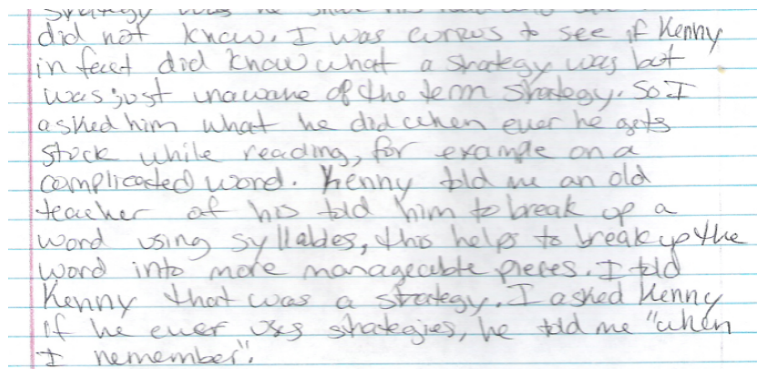 strategy was he
did not know. I was curous to see if Kenny
in fact did know what a strategy was but
was just unaware of the term strategy. So I
asked him what he did when ever he gets
stuck while reading, for example on a
complicated word. Kenny told me an old
teacher of his told him to break up a
word using syllables, this helps to break up the
word into more manageable pieces. I told
Kenny that was a strategy. I asked Kenny
if he ever uses strategies, he told me "when
I remember".